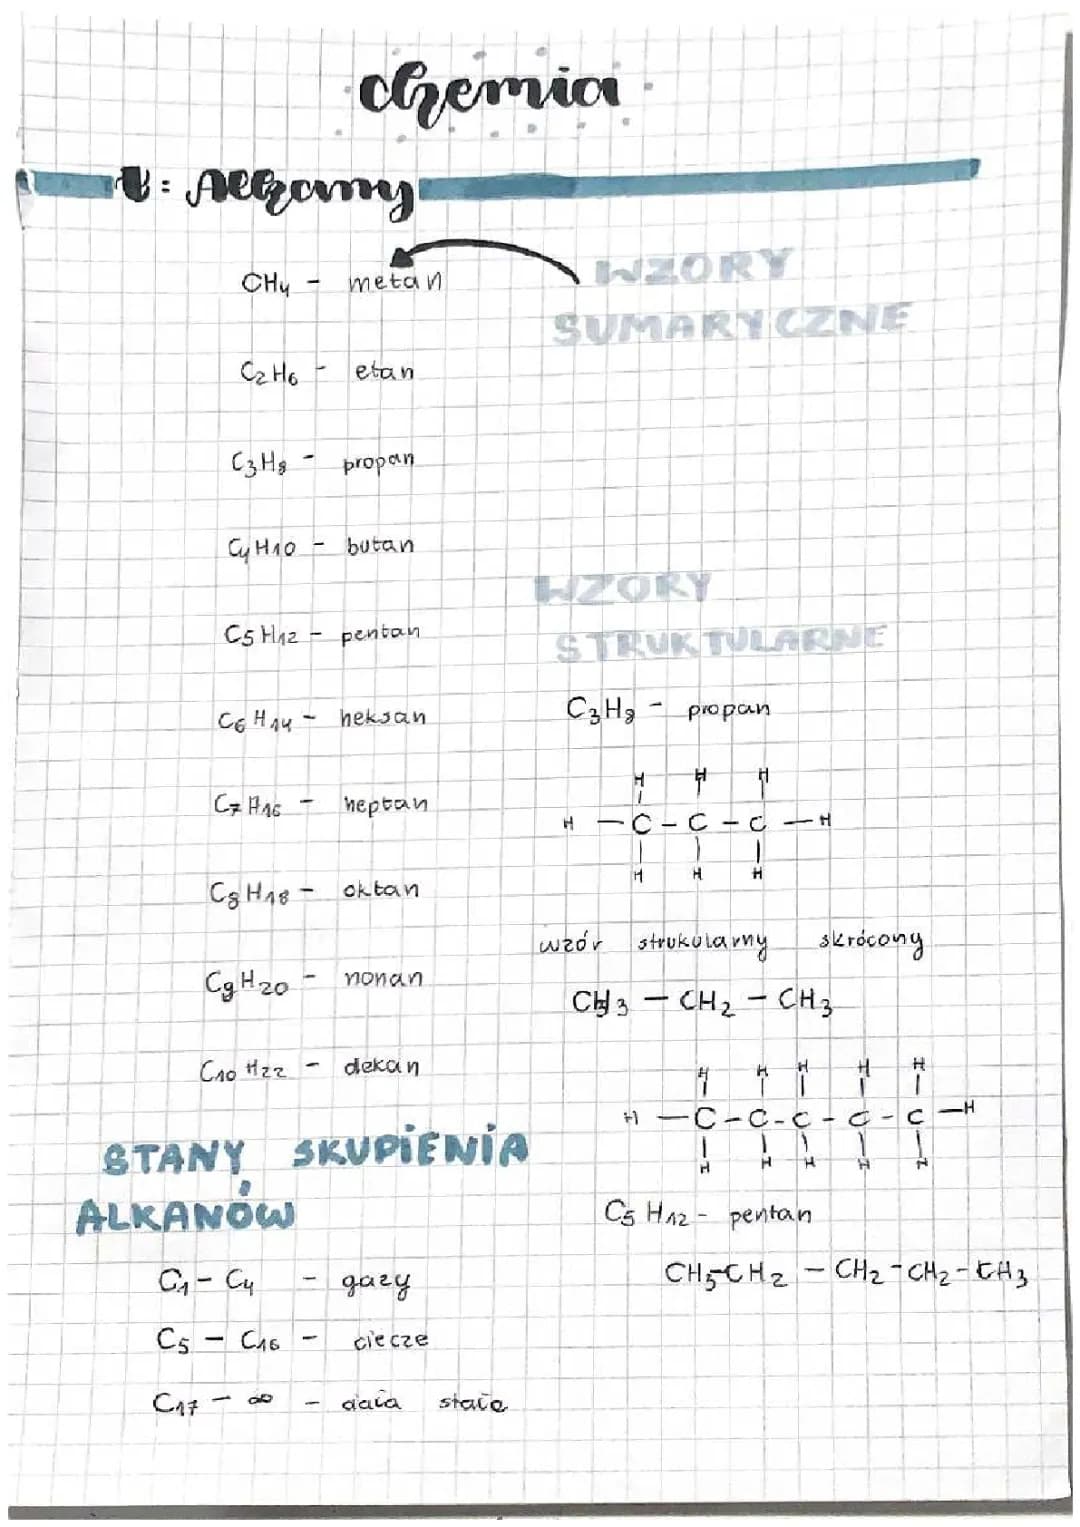 chemia
T: Alkany
CH₄ - metan
WZORY
SUMARYCZNE
C₂H₆ - etan
C₃H₈ - propan
C₄H₁₀ - butan
C₅H₁₂ - pentan
C₆H₁₄ - heksan
C₇H₁₆ - heptan
C₈H₁₈ - oktan
C₉H₂₀ - nonan
C₁₀H₂₂ - dekan
WZORY
STRUKTULARNE
C₃H₈ - propan
H H H
H - C - C - C - H
H H H
wzór strukularny skrócony
CH₃ - CH₂ - CH₃
H H H H H
H - C - C - C - C - C - H
H H H H H
C₅H₁₂ - pentan
CH₃-CH₂ - CH₂ - CH₂ - CH₃
STANY SKUPIENIA
ALKANÓW
C₁ - C₄ - gazy
C₅ - C₁₆ - ciecze
C₁₇ - ∞ - ciała stałe